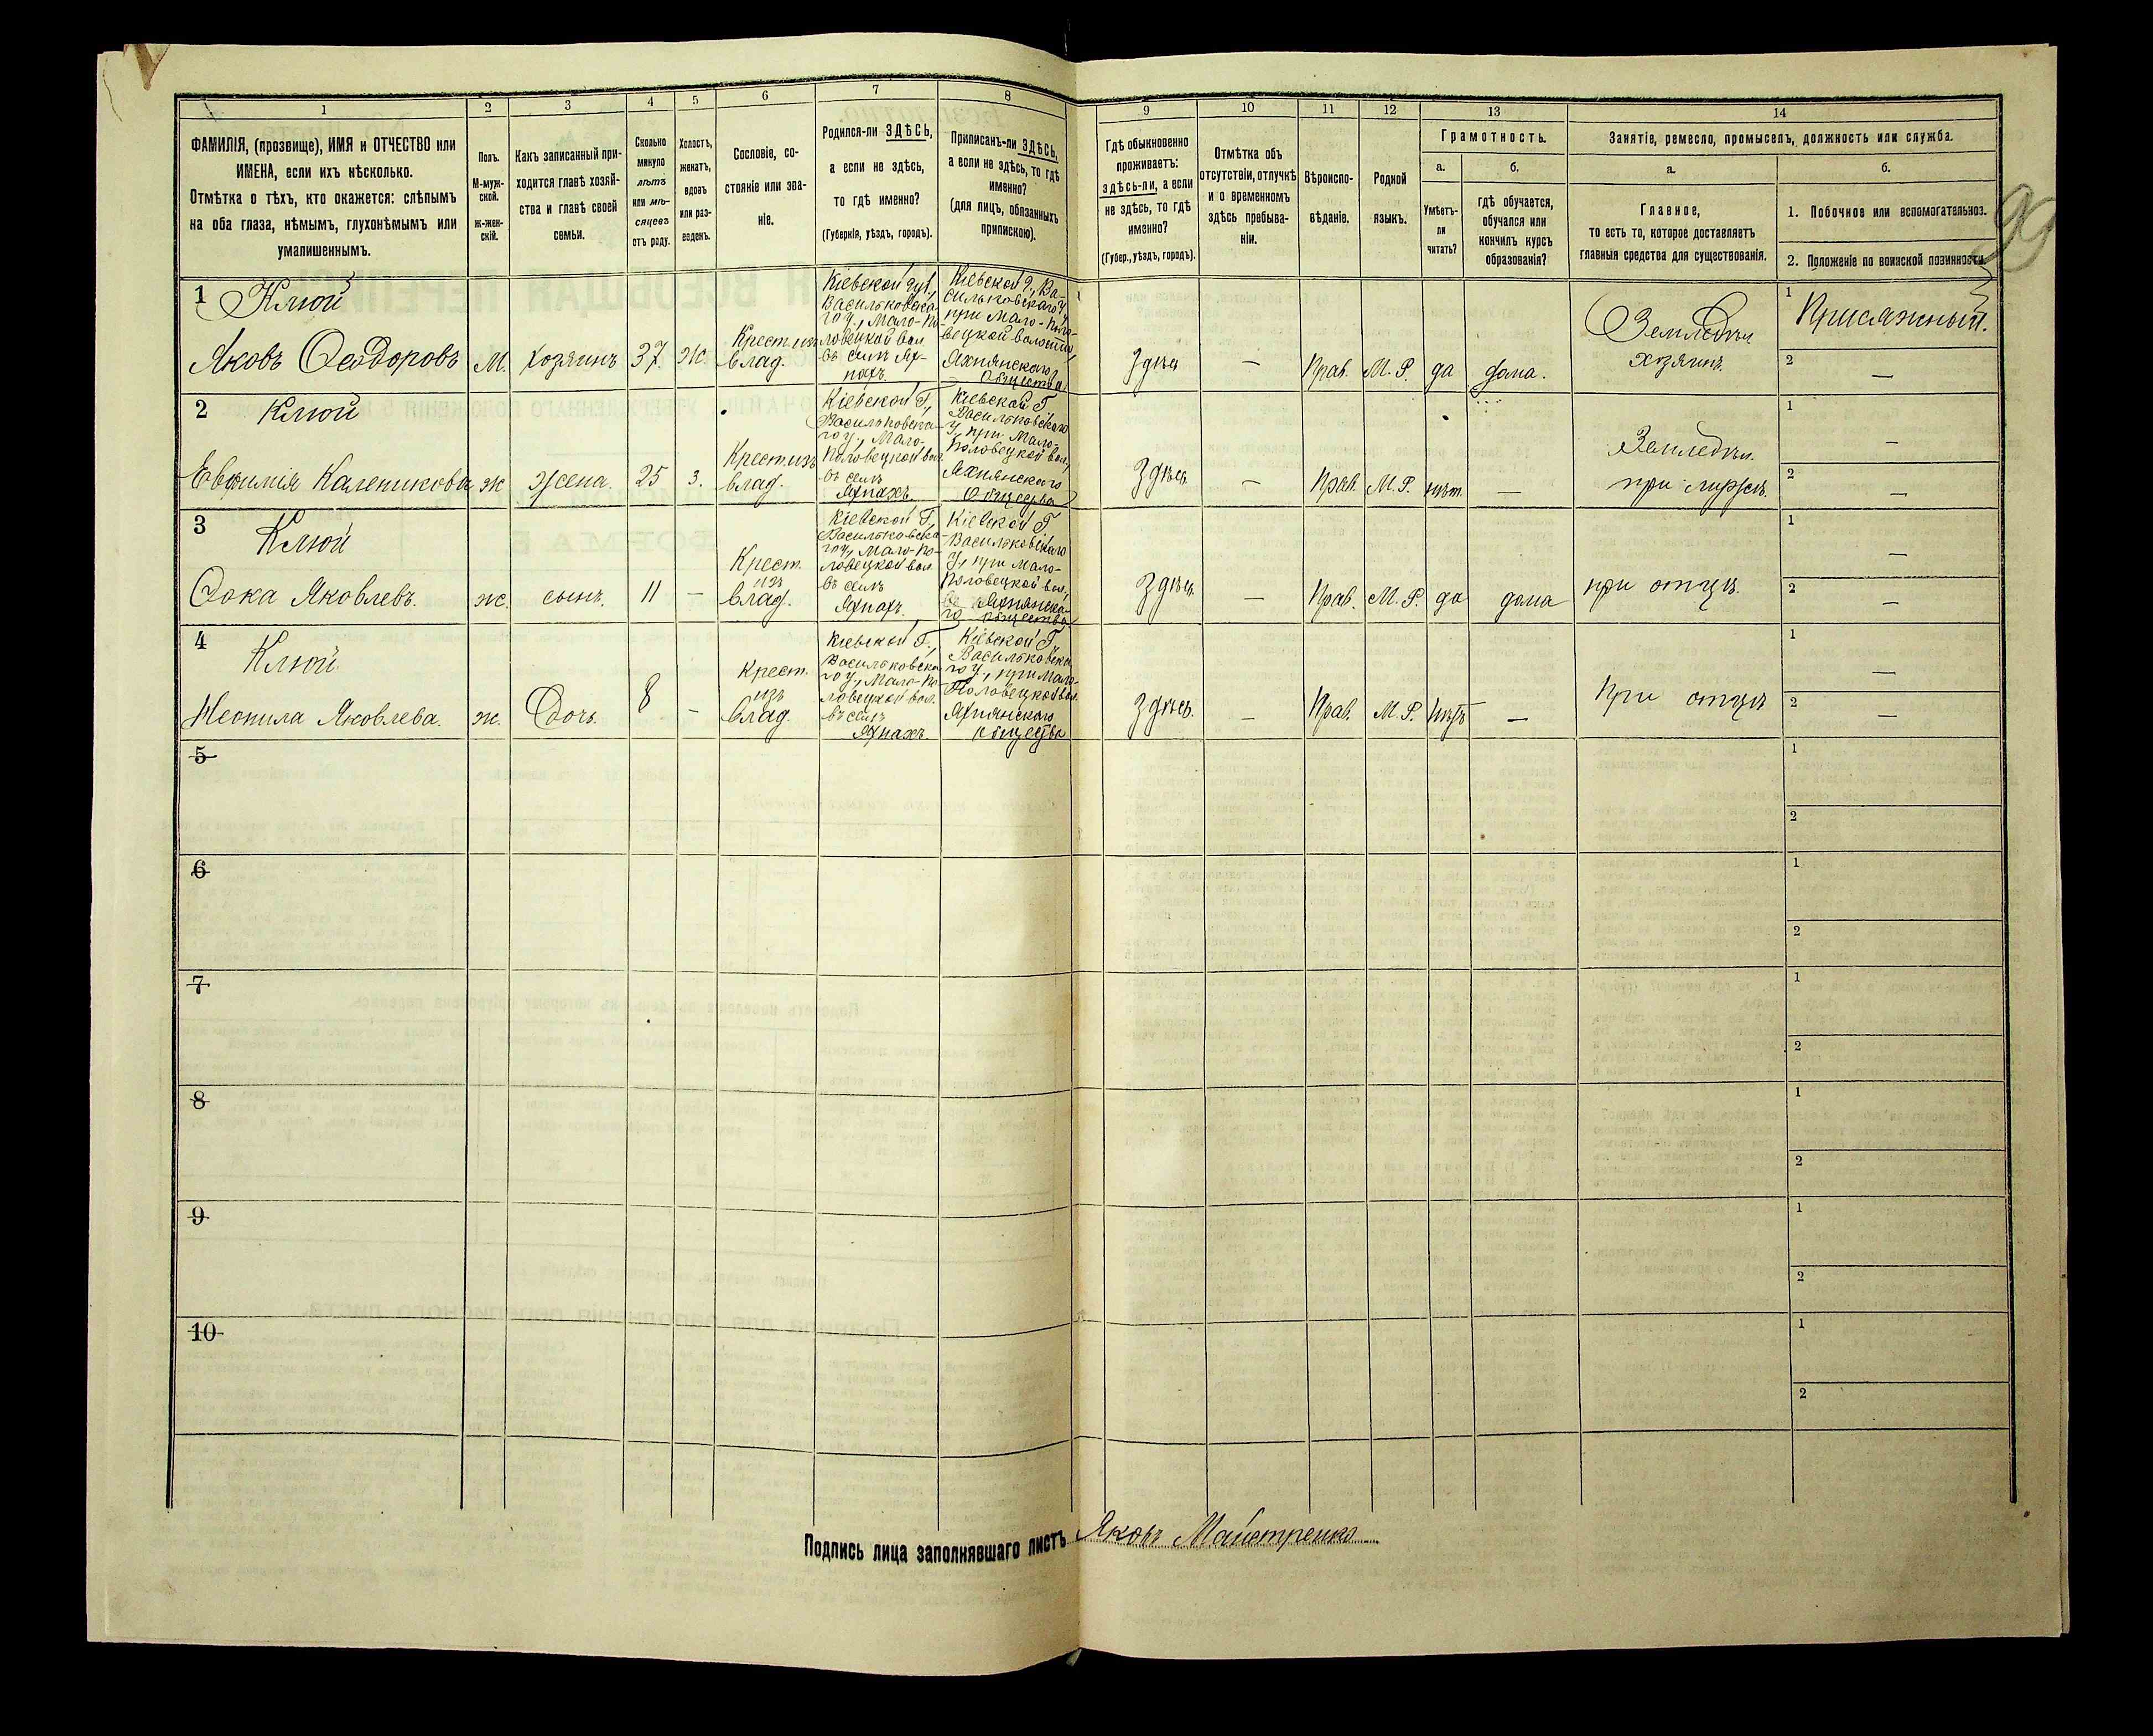 1
2
3
4
5
6
7
8
9
10
11
12
13
14
ФАМИЛІЯ, (прозвище), ИМЯ и ОТЧЕСТВО или
ИМЕНА, если ихъ нѣсколько.
Отмѣтка о тѣхъ, кто окажется: слѣпымъ
на оба глаза, нѣмымъ, глухонѣмымъ или
умалишеннымъ.
Полъ.
М-муж-
ской.
ж-жен-
скій.
Какъ записанный при-
ходится главѣ хозяй-
ства и главѣ своей
семьи.
Сколько
минуло
лѣтъ
или мѣ-
сяцевъ
отъ роду.
Холостъ,
женатъ,
вдовъ
или раз-
веденъ.
Сословіе, со-
стояніе или зва-
ніе.
Родился-ли ЗДѢСЬ,
а если не здѣсь,
то гдѣ именно?
(Губернія, уѣздъ, городъ).
Приписанъ-ли ЗДѢСЬ,
а если не здѣсь, то гдѣ
именно?
(для лицъ, обязанныхъ
припискою).
Гдѣ обыкновенно
проживаетъ:
здѣсь-ли, а если
не здѣсь, то гдѣ
именно?
(Губер., уѣздъ, городъ).
Отмѣтка объ
отсутствіи, отлучкѣ
и о временномъ
здѣсь пребыва-
ніи.
Вѣроиспо-
вѣданіе.
Родной
языкъ.
Грамотность.
а.
Умѣетъ-
ли
читать?
б.
гдѣ обучается,
обучался или
кончилъ курсъ
образованія?
Занятіе, ремесло, промыселъ, должность или служба.
а.
Главное,
то есть то, которое доставляетъ
главныя средства для существованія.
б.
1. Побочное или вспомогательное.
2. Положеніе по воинской повинности.
99
1 Клюй
Яковъ Ѳеодоровъ
М.
хозяинъ
37.
Ж.
Крест. изъ
влад.
Кіевской губ.,
Васильковска-
го у., Мало-По-
ловецкой вол
въ селѣ Ях-
нахъ.
Кіевской г., Ва-
сильковскаго у
при Мало-Поло-
вецкой волости,
Яхнянскаго
общества
Здѣсь
—
Прав.
М. Р.
да
дома.
Земледѣл
хозяинъ.
1
Присяжный.
2
—
2 Клюй
Евфимія Каленикова
ж
жена.
25
з.
Крест. изъ
влад.
Кіевской Г,
Васильковска-
го у., Мало-
Половецкой вол
въ селѣ
Яхнахъ.
Кіевской Г
Васильковскаго
у, при Мало-
Половецкой вол,
Яхнянскаго
общества
Здѣсь.
—
Прав.
М. Р.
нѣт.
—
Земледѣл.
при мужѣ.
1
—
2
—
3
Клюй
Ѳока Яковлевъ.
ж.
сынъ.
11
—
Крест.
изъ
влад.
Кіевской Г,
Васильковска-
го у, Мало-По-
ловецкой вол.
въ селѣ
Яхнахъ.
Кіевской Г.
Васильковскаго
У, при Мало-
Половецкой вол,
Яхнянска-
го общества.
Здѣсь.
—
Прав.
М. Р.
да
дома
при отцѣ.
1
—
2
—
4
Клюй.
Неонила Яковлева.
ж.
Дочь.
8
—
Крест.
изъ
влад.
Кіевской Г.,
Васильковска
го у, Мало-По-
ловецкой вол.
въ селѣ
Яхнахъ.
Кіевской Г,
Васильковска
го у, при Мало-
Половецкой вол.
Яхнянскаго
общества
Здѣсь.
—
Прав.
М. Р.
нѣтъ
—
При отцѣ
1
—
2
—
5
1
2
6
1
2
7
1
2
8
1
2
9
1
2
10
1
2
Подпись лица заполнявшаго листъ Яковъ Майстренко